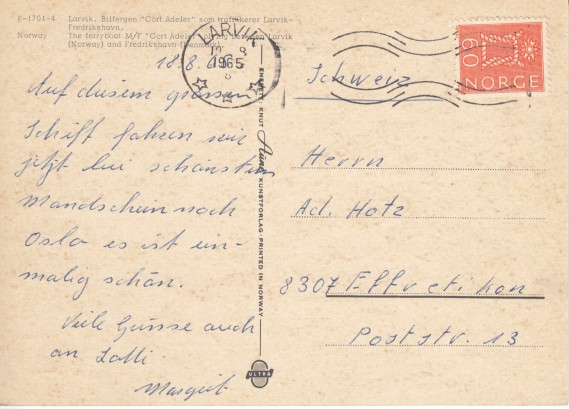 E-1701-4 Larvik. Bilfergen "Cort Adeler" som trafikkerer Larvik-
Fredrikshavn.
Norway The ferryboat M/F "Cort Adeler" plying between Larvik
(Norway) and Fredrikshavn (Denmark)
LARVIK
1965
18.8.65
Auf diesem grossen
Schiff fahren wir
jetzt bei schönstem
Mondschein nach
Oslo es ist ein-
malig schön.
Viele Grüsse auch
an Lotti
Margrit
ENERETT: KNUT Aune KUNSTFORLAG - PRINTED IN NORWAY
ULTRA
60
NORGE
Schweiz
Herrn
Ad. Hotz
8307 Effretikon
Poststr. 13